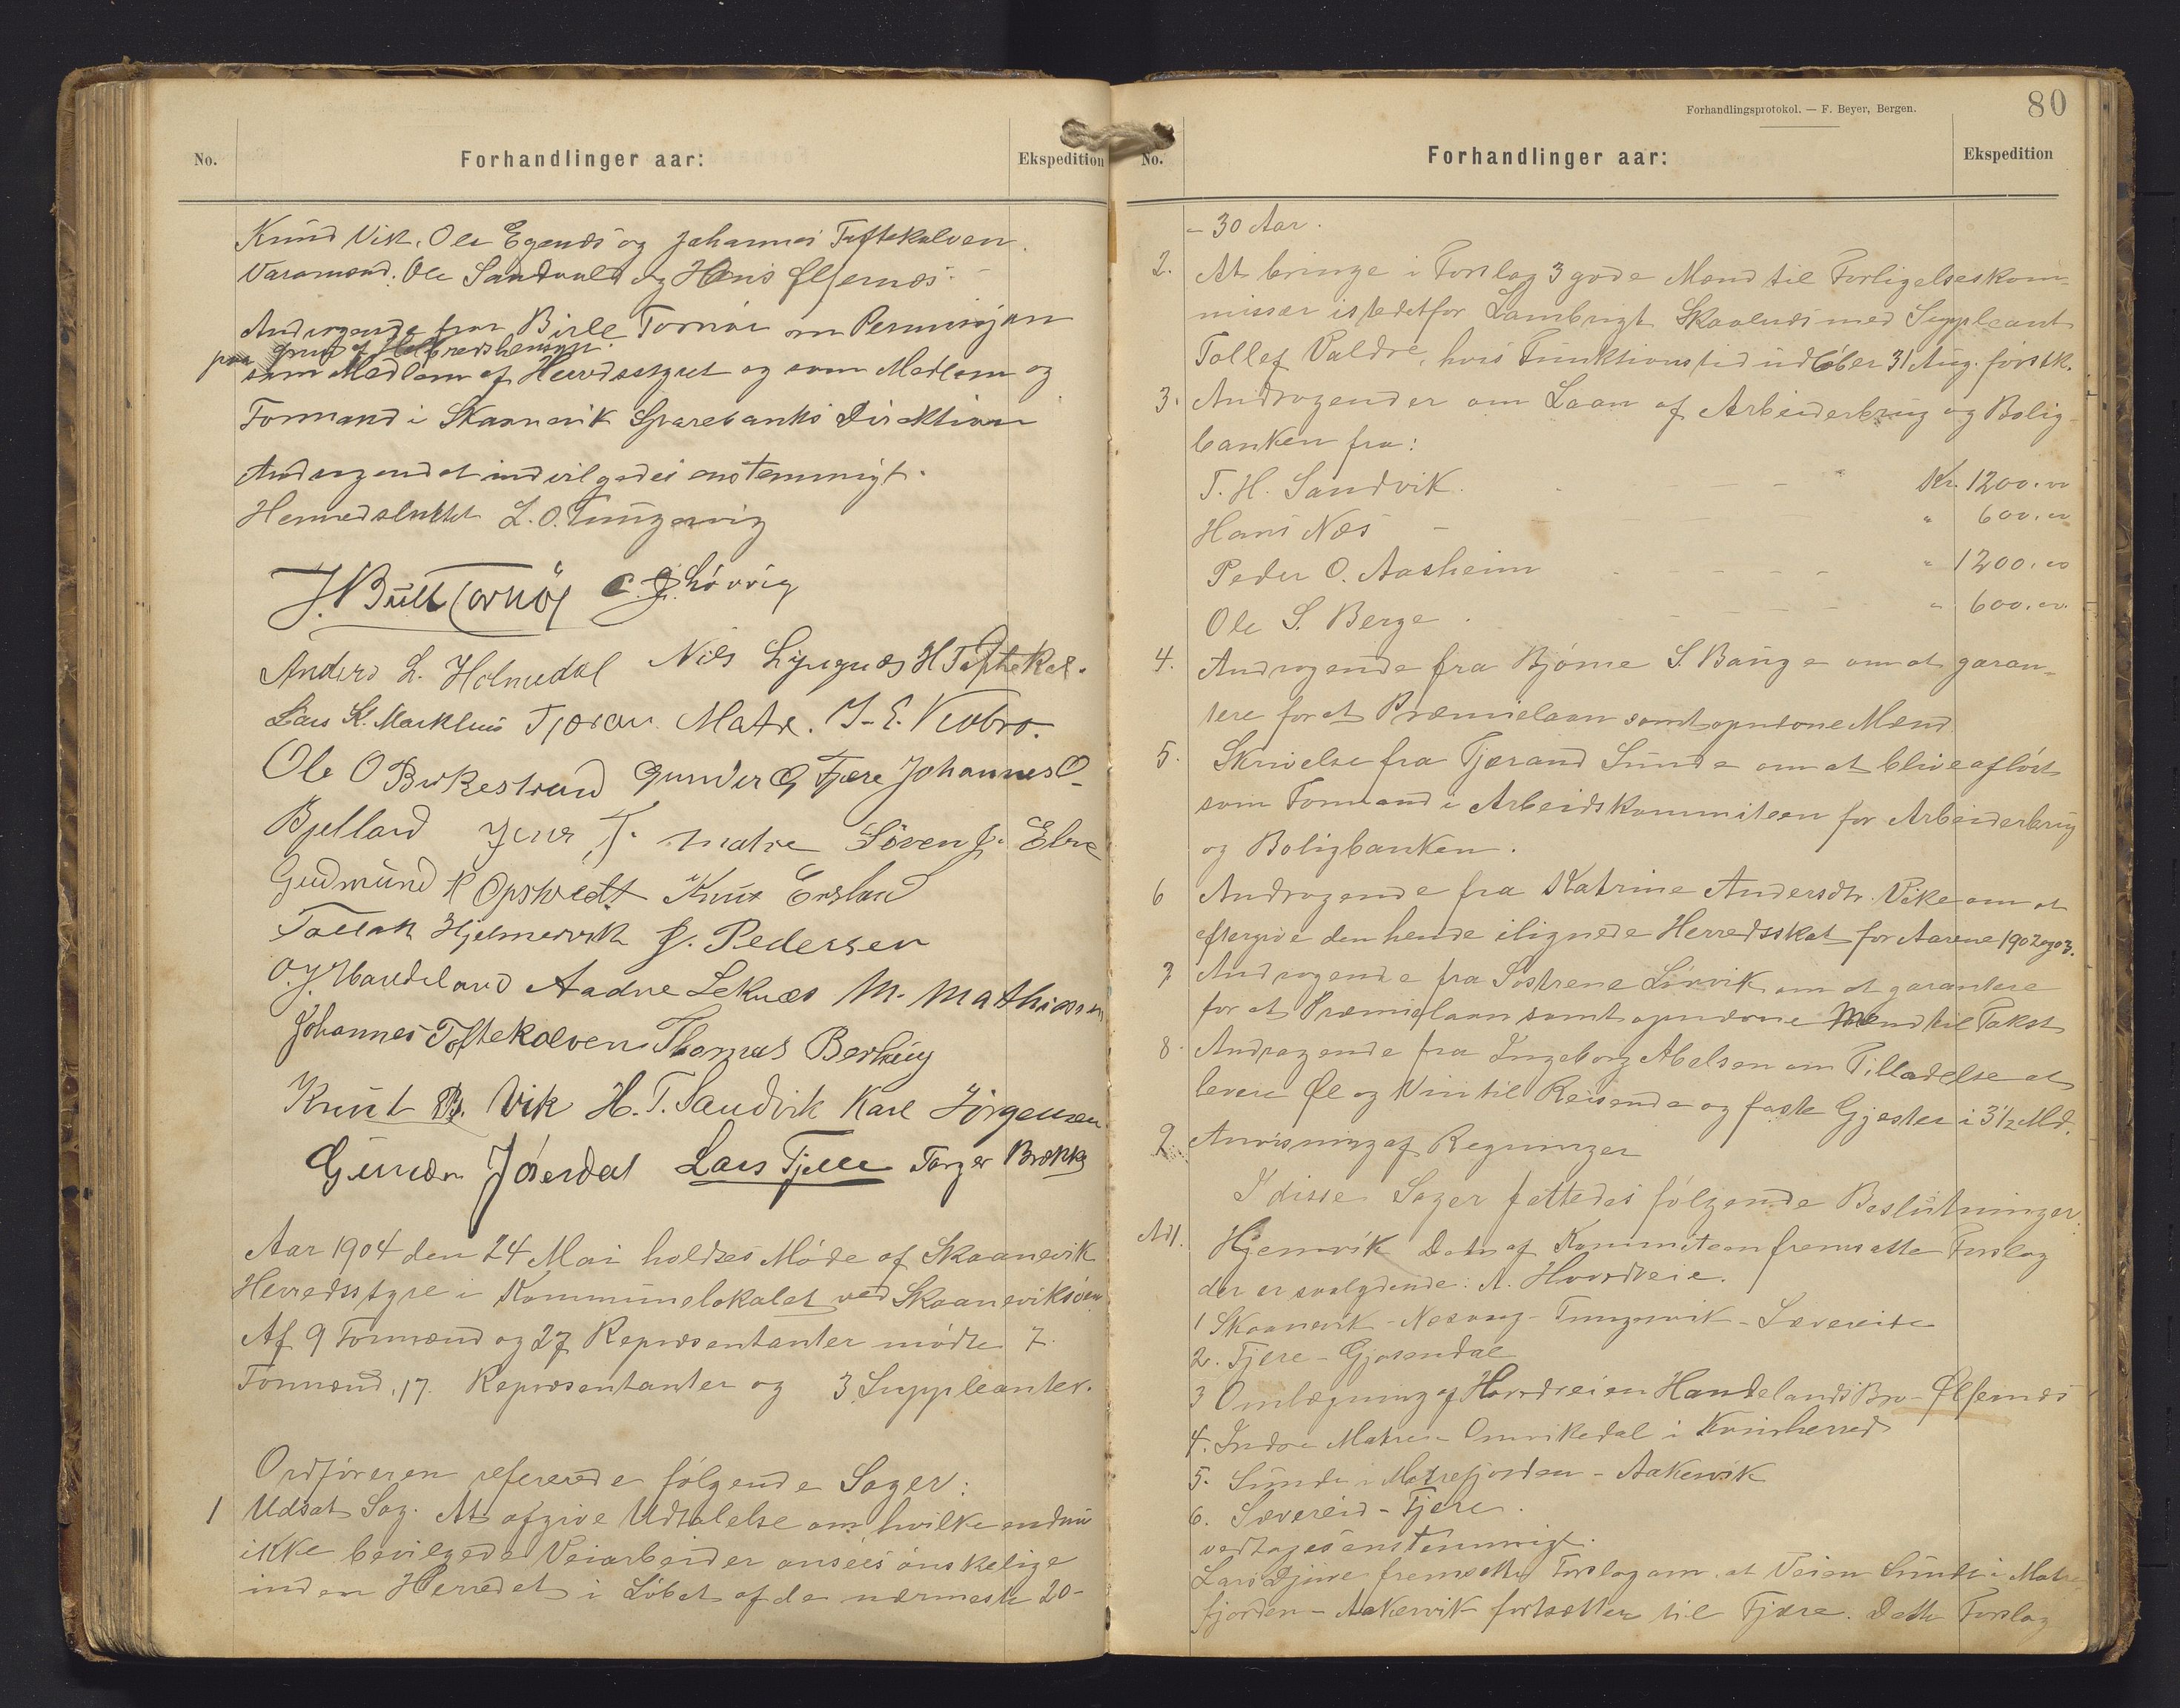 No.
Forhandlinger aar:
Ekspedition
Knud Vik, Ole Egenæs og Johannes Toftekalven.
Varamænd: Ole Sandvold og Hans Ølfernæs.
Andragende fra Birle Tornøe om Permisjon
paa Grund af Helbredshensyn
som Medlem af Herredsstyret og som Medlem og
Formand i Skaanevik Sparebanks Direktion
Andragendet indvilgedes enstemmigt.
Hermed sluttet L. O. Tungesvig
J. Bull Tornøe C. J. Løvvig
Anders L. Holmedal Nils Lyngnæs H Toftekal.
Lars K. Markhus Tjæran Matre. J. E. Vinbro.
Ole O Birkestrand Gunder G Fjære Johannes O
Bjelland Jens T. Matre Søren J. Elne
Gudmund H Opstvedt Knut Ersland
Tollak Hjelmervik J. Pedersen
O. J. Handeland Aadne Leknæs M. Mathiassen
Johannes Toftekalven Thomas Berhaug
Knut Vik H. T. Sandvik Karl Jørgensen
Gunder Jøsendal Lars Fjære Torger Brekke
Aar 1904 den 24 Mai holdtes Møde af Skaanevik
Herredsstyre i Kommunelokalet ved Skaaneviksøen
Af 9 Formænd og 27 Repræsentanter mødte 7
Formænd, 17 Repræsentanter og 3 Suppleanter.
Ordføreren refererede følgende Sager:
1 Udsat Sag. At afgive Udtalelse om hvilke endnu
ikke bevilgede Veiarbeider ansees ønskelige
inden Herredet i Løbet af de nærmeste 20-
Forhandlingsprotokol. — F. Beyer, Bergen.
80
No.
Forhandlinger aar:
Ekspedition
- 30 Aar.
2. At bringe i Forslag 3 gode Mænd til Forligelseskom-
missær istedetfor Lambrigt Skaalnæs med Suppleant
Tollef Valdre, hvis Funktionstid udløber 31 Aug. førstk.
3. Andragender om Laan af Arbeiderbrug og Bolig
banken fra:
T. H. Sandvik Kr. 1200.00
Hans Næs - " 600.00
Peder O. Aasheim " 1200.00
Ole S. Berge " 600.00
4. Andragende fra Bjørne S. Bauge om at garan-
tere for et Præmielaan samt opnævne Mænd
5. Skrivelse fra Tjærand Sunde om at blive afløst
som Formand i Arbeidskommiteen for Arbeiderbrug
og Boligbanken.
6 Andragende fra Katrine Andersdtr. Vike om at
eftergive den hende ilignede Herredsskat for Aarene 1902 og 03.
7 Andragende fra Søstrene Lørvik om at garantere
for et Præmielaan samt opnævne Mænd til Takst
8. Andragende fra Ingeborg Abelsen om Tilladelse at
levere Øl og Vin til Reisende og faste Gjester i 3 1/2 Md.
9. Anvisning af Regninger
I disse Sager fattedes følgende Beslutninger:
Ad 1. Hjemvik Det af Kommiteen fremsatte Forslag
der er saalydende: A. Hovedveie.
1 Skaanevik - Næsvag - Tungesvik - Sævereide
2. Fjære - Gjøsendal
3 Omlægning af Hovedveien Handelands Bro - Ølfernæs
4. Indre Matre - Omvikedal i Kvinherred
5. Sunde i Matrefjorden - Aakervik
6. Sævereid - Fjære.
vedtages enstemmigt.
Lars Djuve fremsatte Forslag om at Veien Sunde i Matre
fjorden - Aakervik fortsættes til Fjære. Dette Forslag